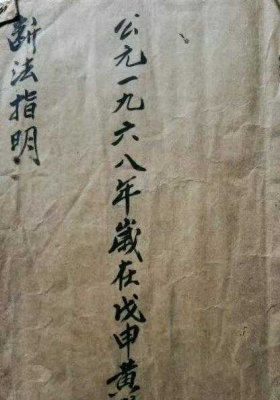 公元一九六八年歲在戊申黄
断法指明